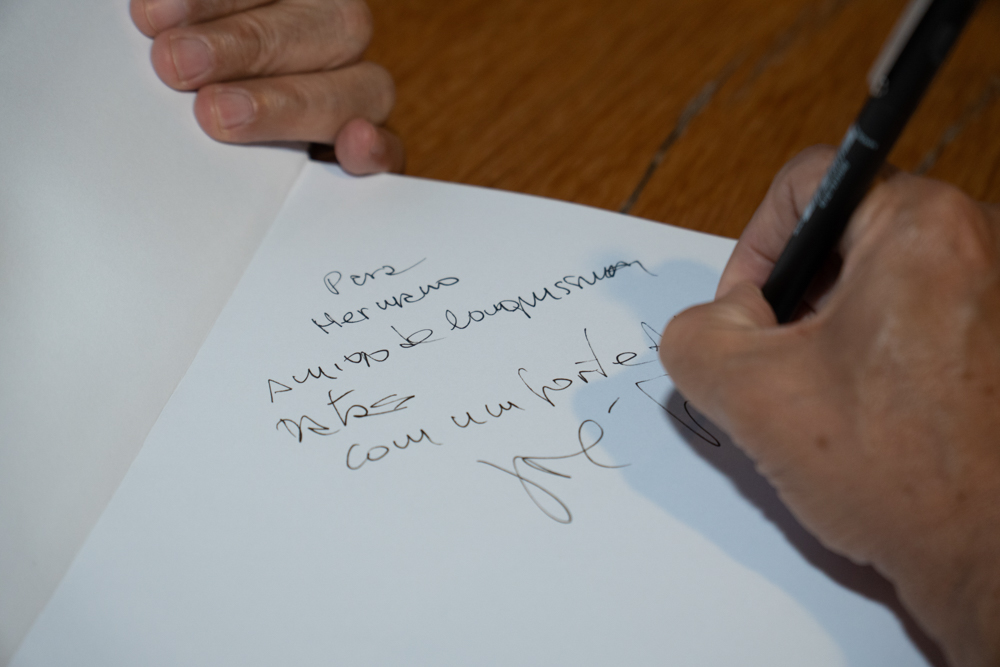 Para
Hermano
Amigo de longuíssimas
Datas
com um forte A
José